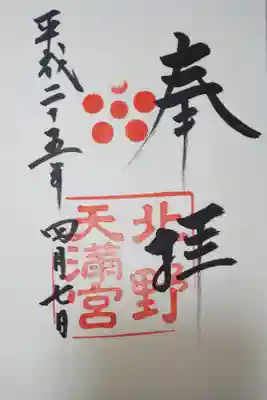 奉拝
北野
天満宮
平成二十五年四月七日